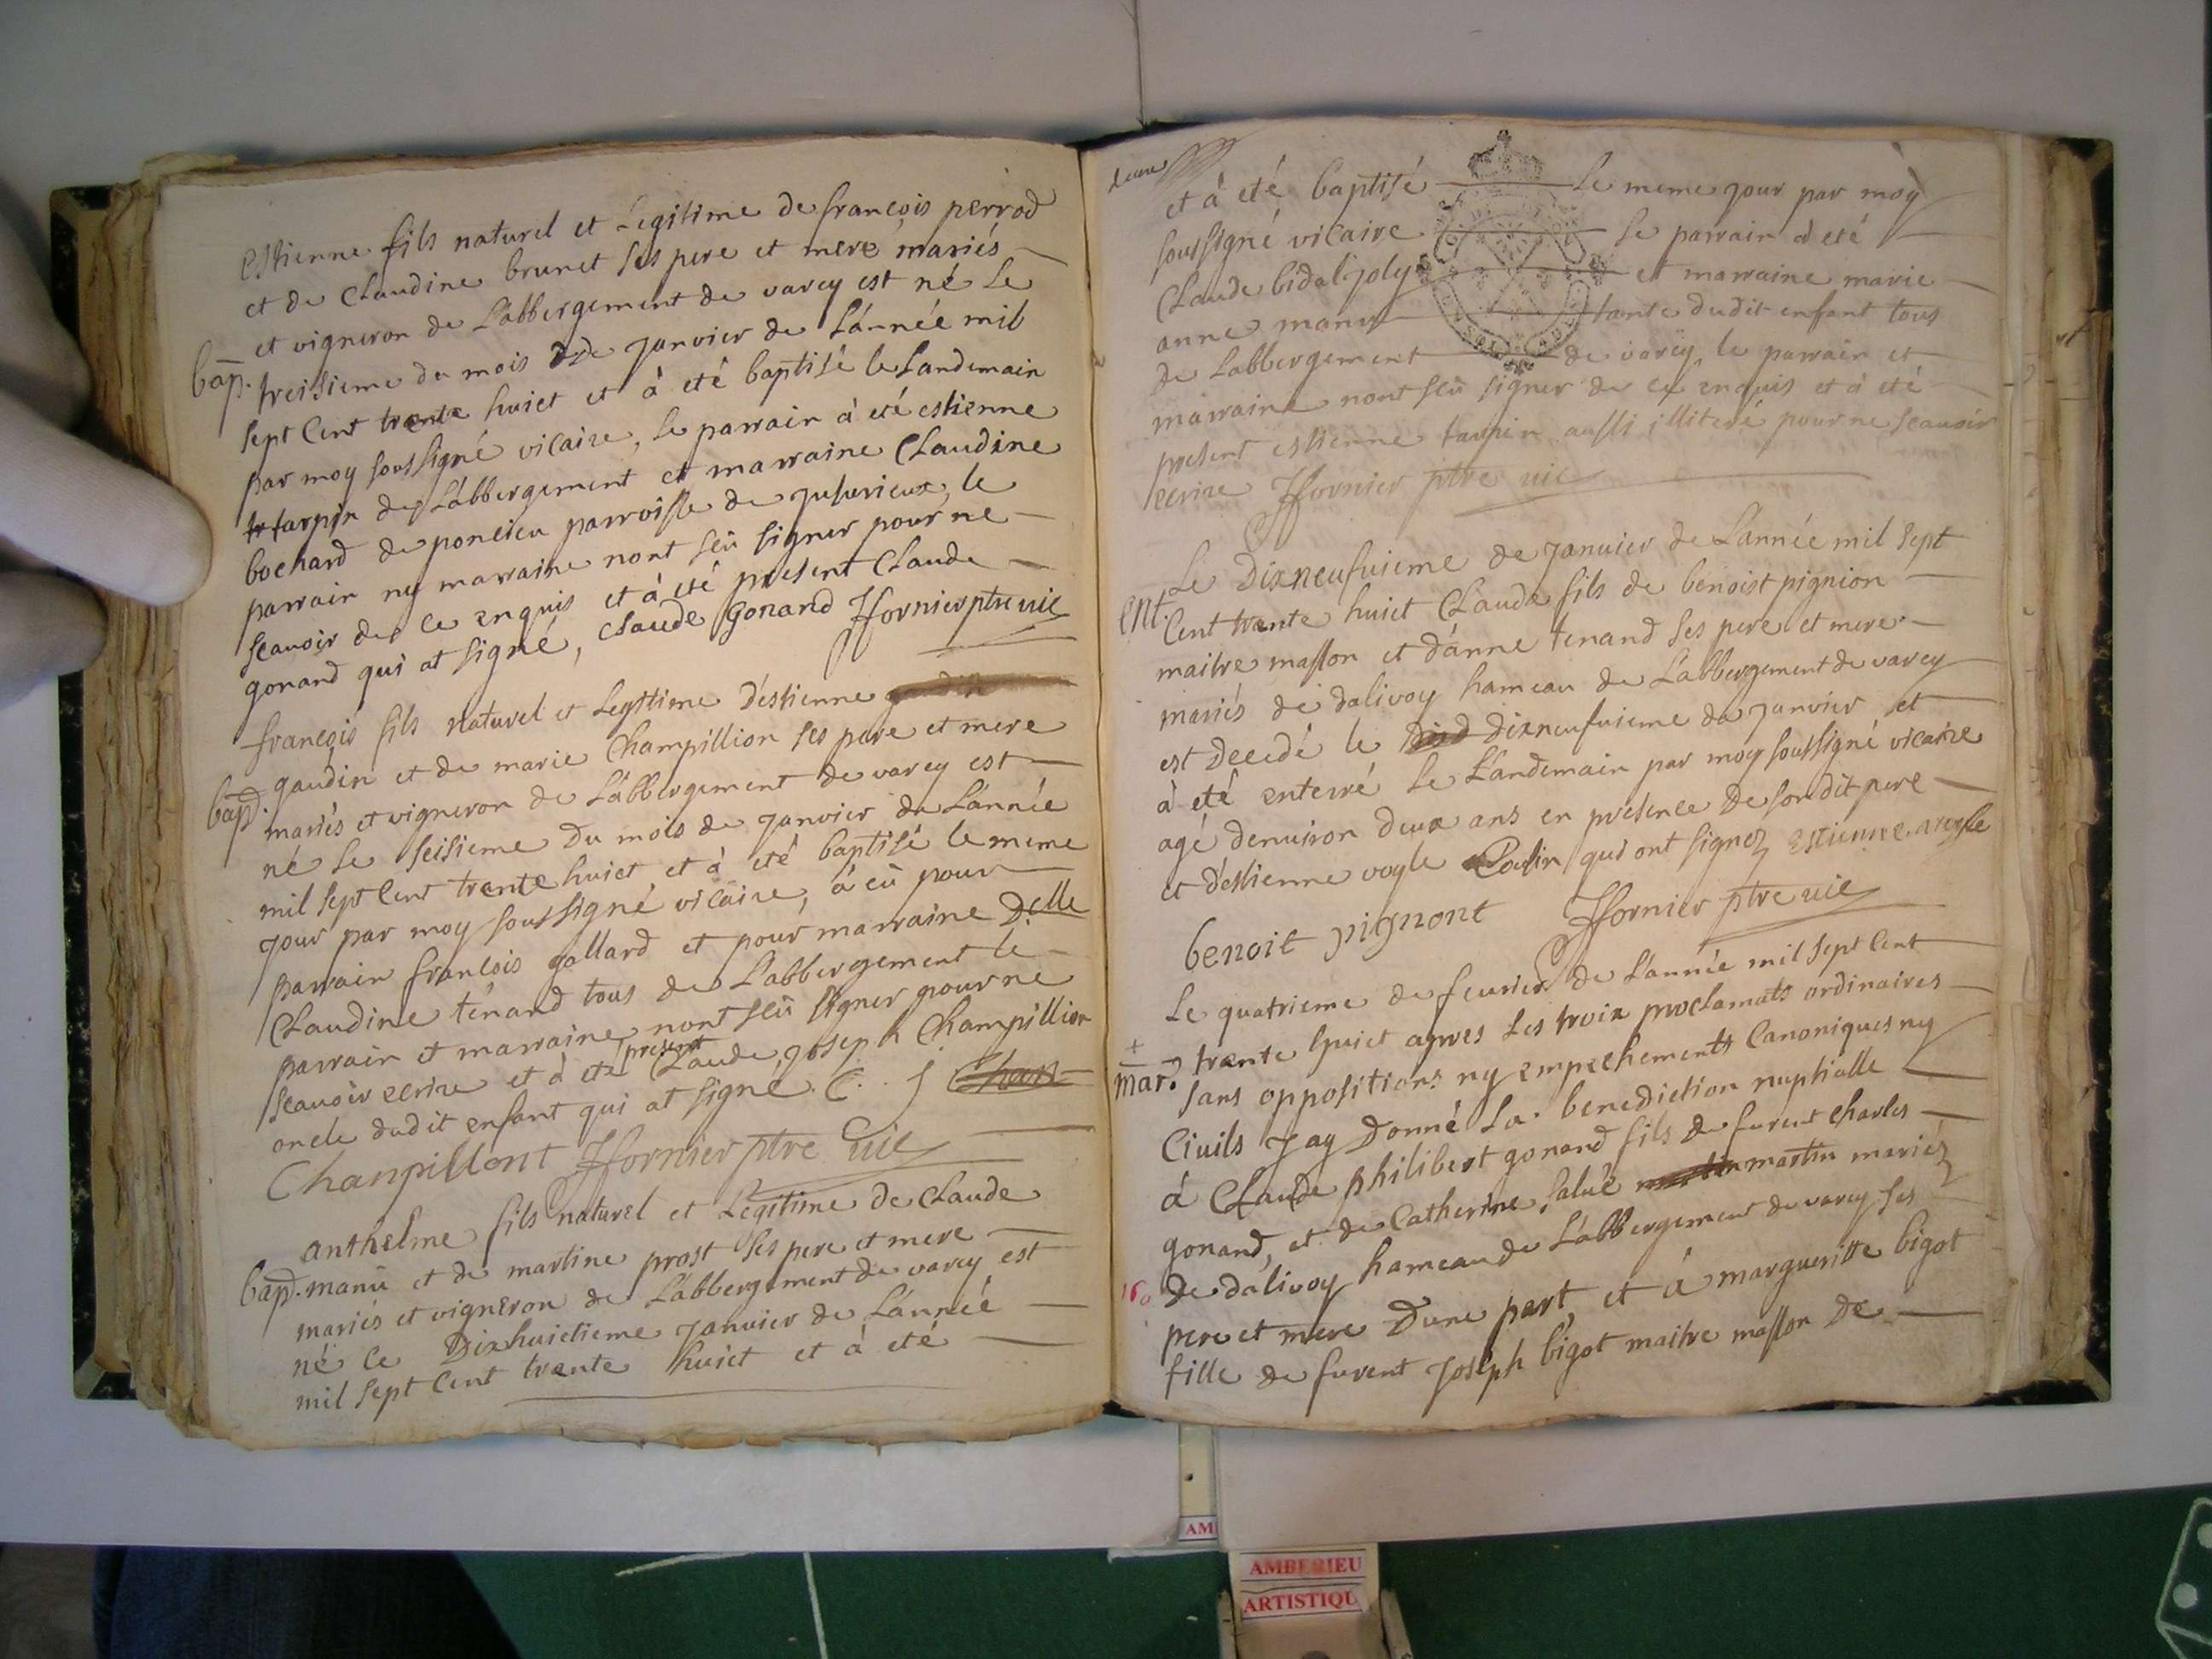 Estienne fils naturel et Legitime de françois perrod
et de Claudine brunet ses pere et mere mariés
et vigneron de Labbergement de varey est né Le
bap. treisieme du mois de Janvier de L'année mil
sept Cent trente huict et à eté baptisé le Landemain
par moy soussigné vicaire, le parrain à eté estienne
tarpin de Labbergement et marraine Claudine
bochard de poncieu parroisse de Jusurieux, le
parrain ny marraine nont sçû signer pour ne
scavoir de ce enquis et à eté present Claude
gonand qui at signé, Claude Gonand ffornier ptre vic
françois fils naturel et Legitime d'estienne
bap. gaudin et de marie Champillion ses pere et mere
mariés et vigneron de Labbergement de varey est
né Le seisieme Du mois de Janvier de L'année
mil sept Cent trente huict et à eté baptisé le meme
jour par moy soussigné vicaire, à eû pour
parrain françois gallard et pour marraine Delle
Claudine tenand tous de Labbergement le
parrain et marraine nont sçû signer pour ne
scavoir ecrire et à eté present Claude Joseph Champillion
oncle dudit enfant qui at signé. C. J Chan
Chanpillont ffornier ptre vic
anthelme fils naturel et Legitime de Claude
bap. manû et de martine prost ses pere et mere
mariés et vigneron de Labbergement de varey est
né le Dixhuictieme Janvier de L'année
mil sept Cent trente huict et à eté
deux
et à eté baptisé le meme jour par moy
soussigné vicaire le parrain à eté
Claude bidal Joly et marraine marie
anne manu tante dudit enfant tous
de Labbergement de varey, le parrain et
marraine nont sçû signer de ce enquis et à eté
present estienne tarpin aussi illiteré pour ne scauoir
ecrire ffornier ptre vic
Le Dixneufuieme de Januier de L'année mil sept
ent. Cent trente huict Claude fils de benoist pignion
maitre masson et d'anne tenand ses pere et mere
mariés de dalivoy hameau de Labbergement de varey
est decedé le dixneufuieme de Janvier et
à eté enterré le Landemain par moy soussigné vicaire
agé denuiron deux ans en presence De sondit pere
et d'estienne vogle Cousin qui ont signez Estienne
benoit pignont ffornier ptre vic
Le quatrieme de feurier de L'année mil sept Cent
+ mar. trente huict apres Les troix proclamats ordinaires
sans oppositions ny empechements Canoniques ny
Ciuils Jay Donné La benediction nuptialle
à Claude philibert gonand fils de furent Charles
gonand, et de Catherine salué martin mariéz
de dalivoy hameau de Labbergement de varey ses
160 pere et mere Dune part, et à margueritte bigot
fille de furent Joseph bigot maitre masson De
AM
AMBERIEU
ARTISTIQU